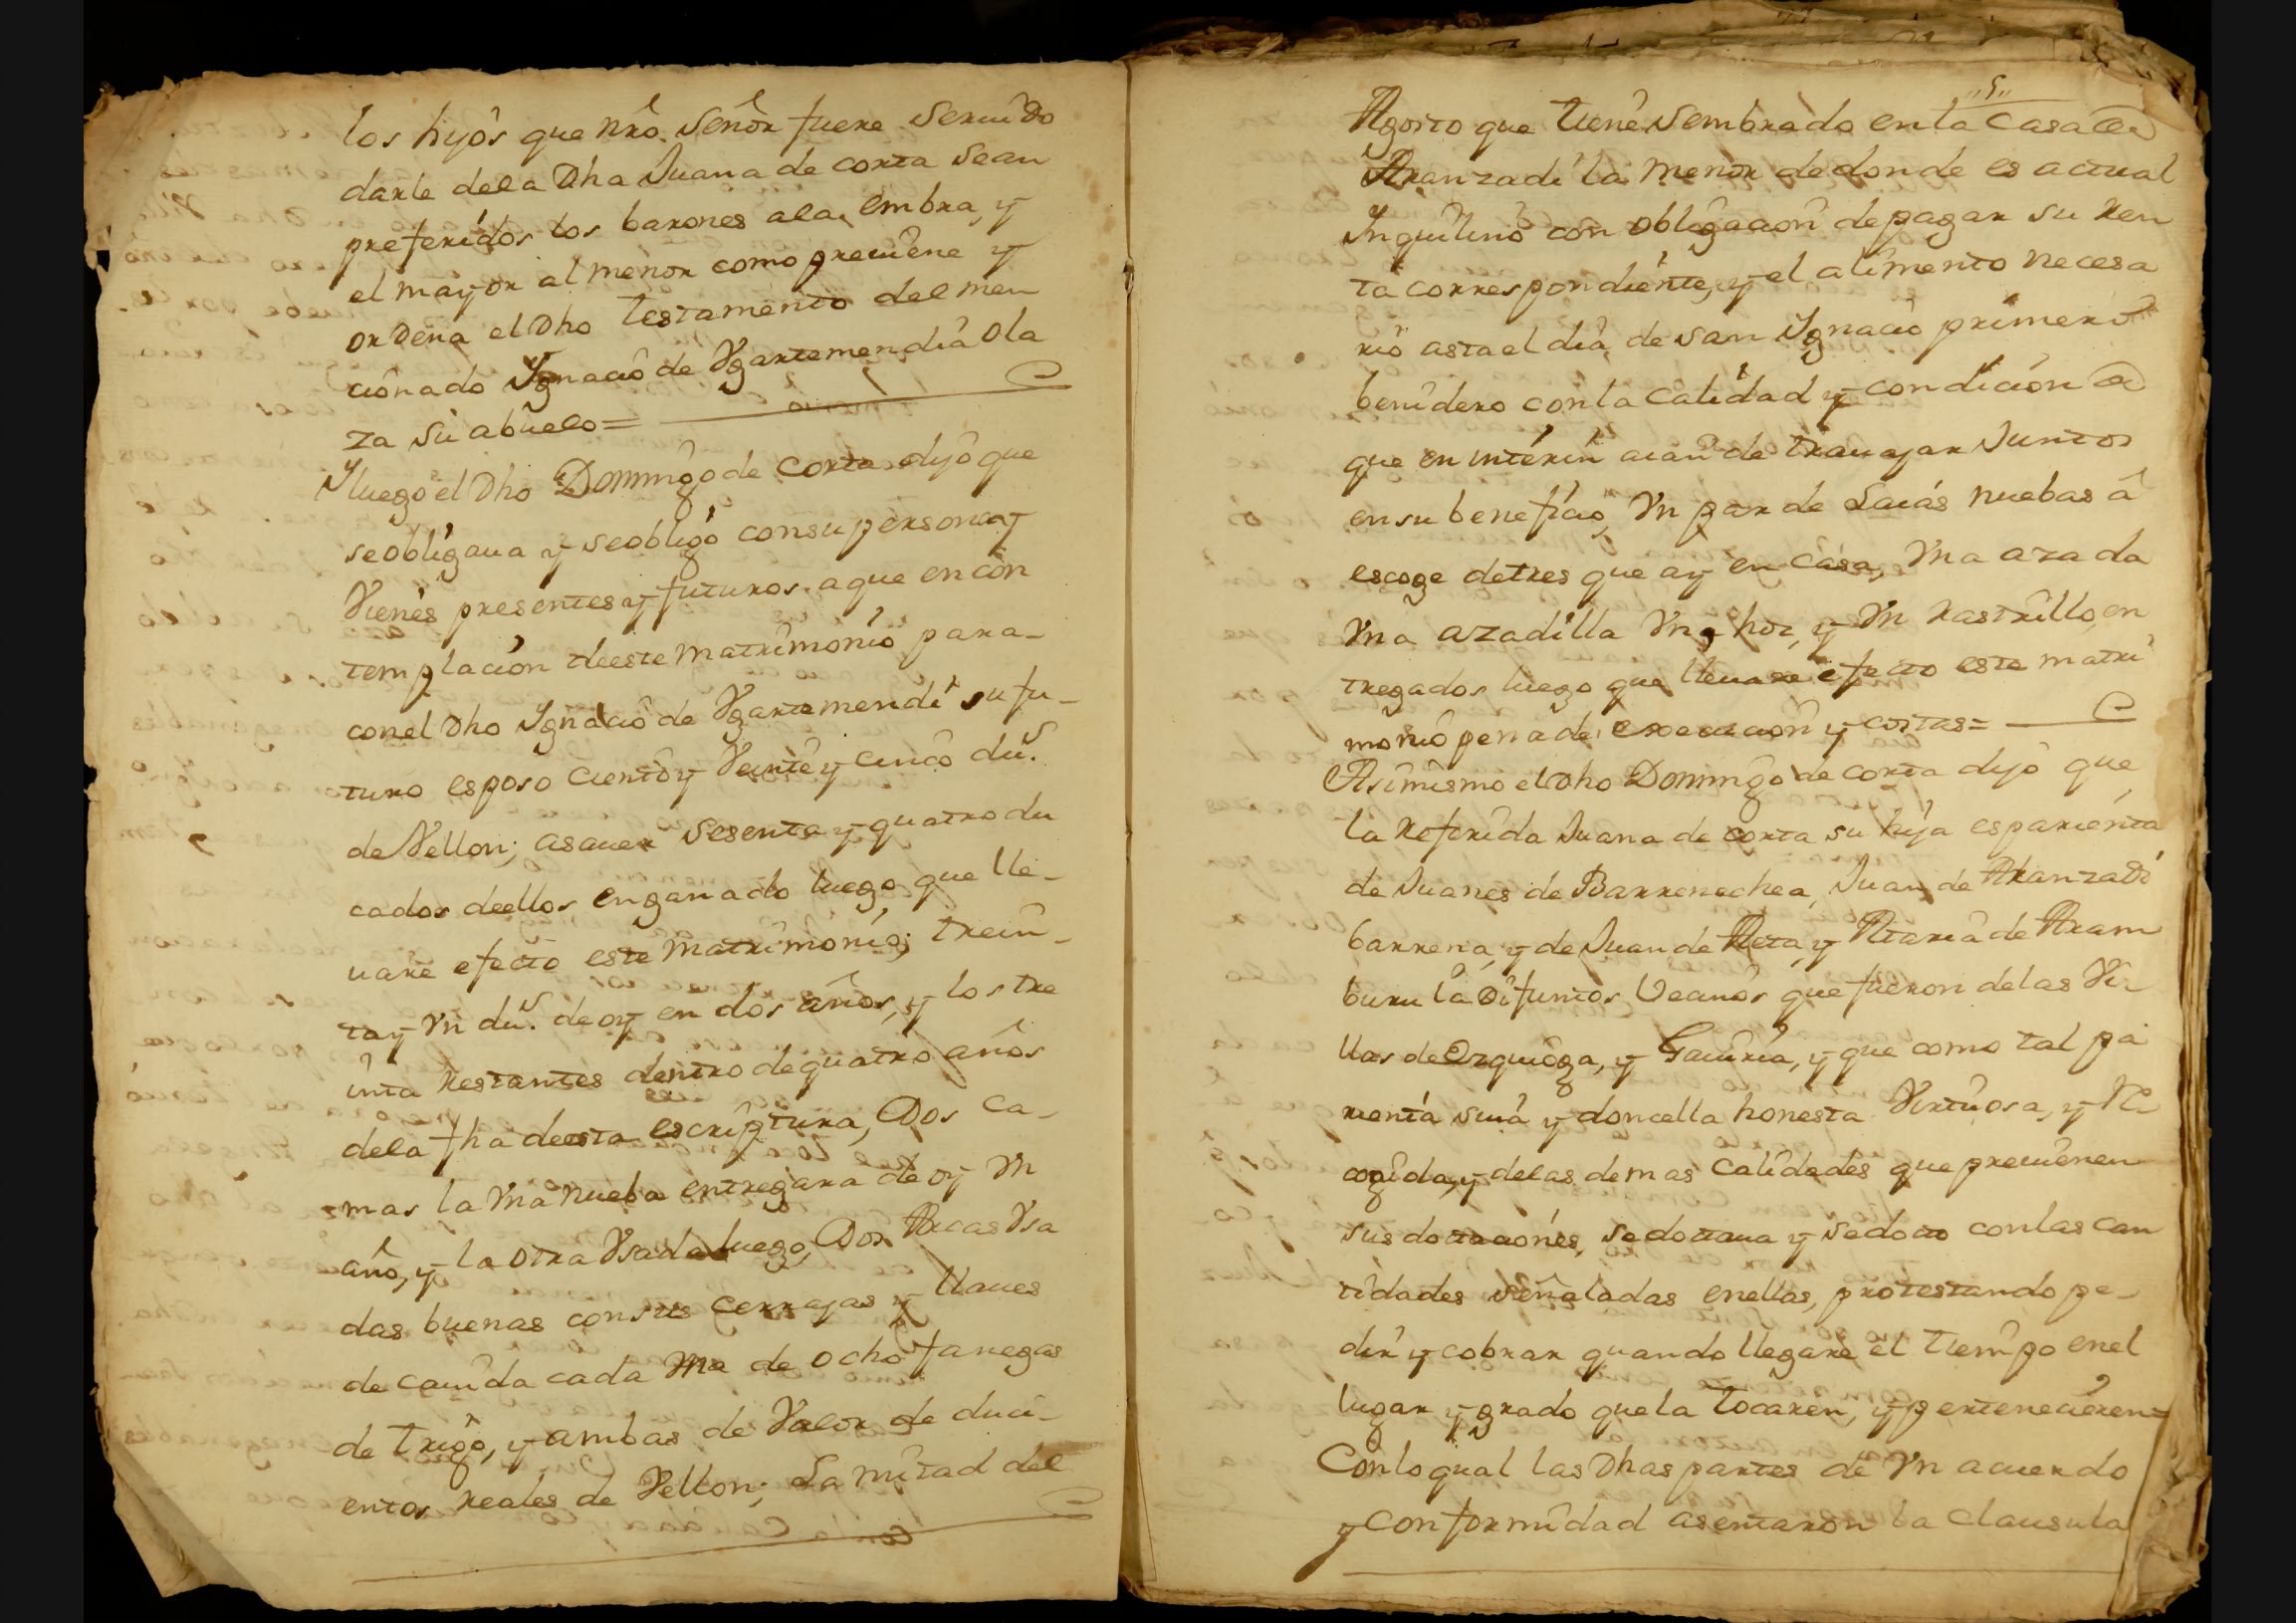 los hijos que nrô. Señor fuere seruido
darle dela Dha Juana de corta sean
preferidos los barones ala embra, y
el mayor al menor como preuiene y
ordena el Dho testamento del men
cionado Ygnacio de Vgartemendia Ola
za su abuelo =
Yluego el Dho Domingo de Corta dijo que
se obligaua y se obligó con su persona y
Vienes presentes y futuros. a que en con
templacion deeste matrimonio para-
conel Dho Ygnacio de Vgartemendi su fu-
turo esposo ciento y Veinte y cinco dus.
de Vellon; asauer sesenta y quatro du
cados deellos en ganado luego que lle-
uare efecto este matrimonio; trein-
ta y Vn dus. de oy en dos años, y los tre
inta Restantes dentro de quatro años
dela fha deesta escriptura, Dos ca-
mas la Vna nueba entregara de oy Vn
año, y la otra Vsada luego, Dos Arcas Vsa
das buenas con sus cerrajas y llaues
de cauida cada Vna de ocho fanegas
de trigo, y ambas de Valor de duci-
entos Reales de Vellon; La mitad del
"5"
Agosto que tiene sembrado en la Casa de
Aranzadi la menor de donde es actual
Ynquilino con obligacion de pagar su Ren
ta correspondiente, y el alimento necesa
rio asta el dia de san Ygnacio primero
benidero con la calidad y condicion de
que en interin aian de trauajar Juntos
en su beneficio, Vn par de Laias nuebas â
escoge de tres que ay en casa, Vna azada
Vna azadilla Vna hoz, y Vn Rastrillo, en
tregados luego que lleuare efecto este matri
monio pena de execucion y costas =
Asimismo el Dho Domingo de corta dijo que
la Referida Juana de corta su hija es parienta
de Juanes de Barrenechea, Juan de Aranzadi
barrena, y de Juan de Aeta, y Maria de Aram
buru la Difuntos Vecinos que fueron de las Vi-
llas de Ezquioga, y Gauiria, y que como tal pa
rienta suia y doncella honesta Virtuosa, y Re
cogida, y delas demas calidades que preuienen
sus dotaciones, se dotaua y se doto con las can
tidades señaladas enellas, protestando pe-
dir y cobrar quando llegare el tiempo enel
lugar y grado que la tocaren, y pertenecieren =
Con lo qual las Dhas partes de Vn acuerdo
y conformidad asentaron la clausula